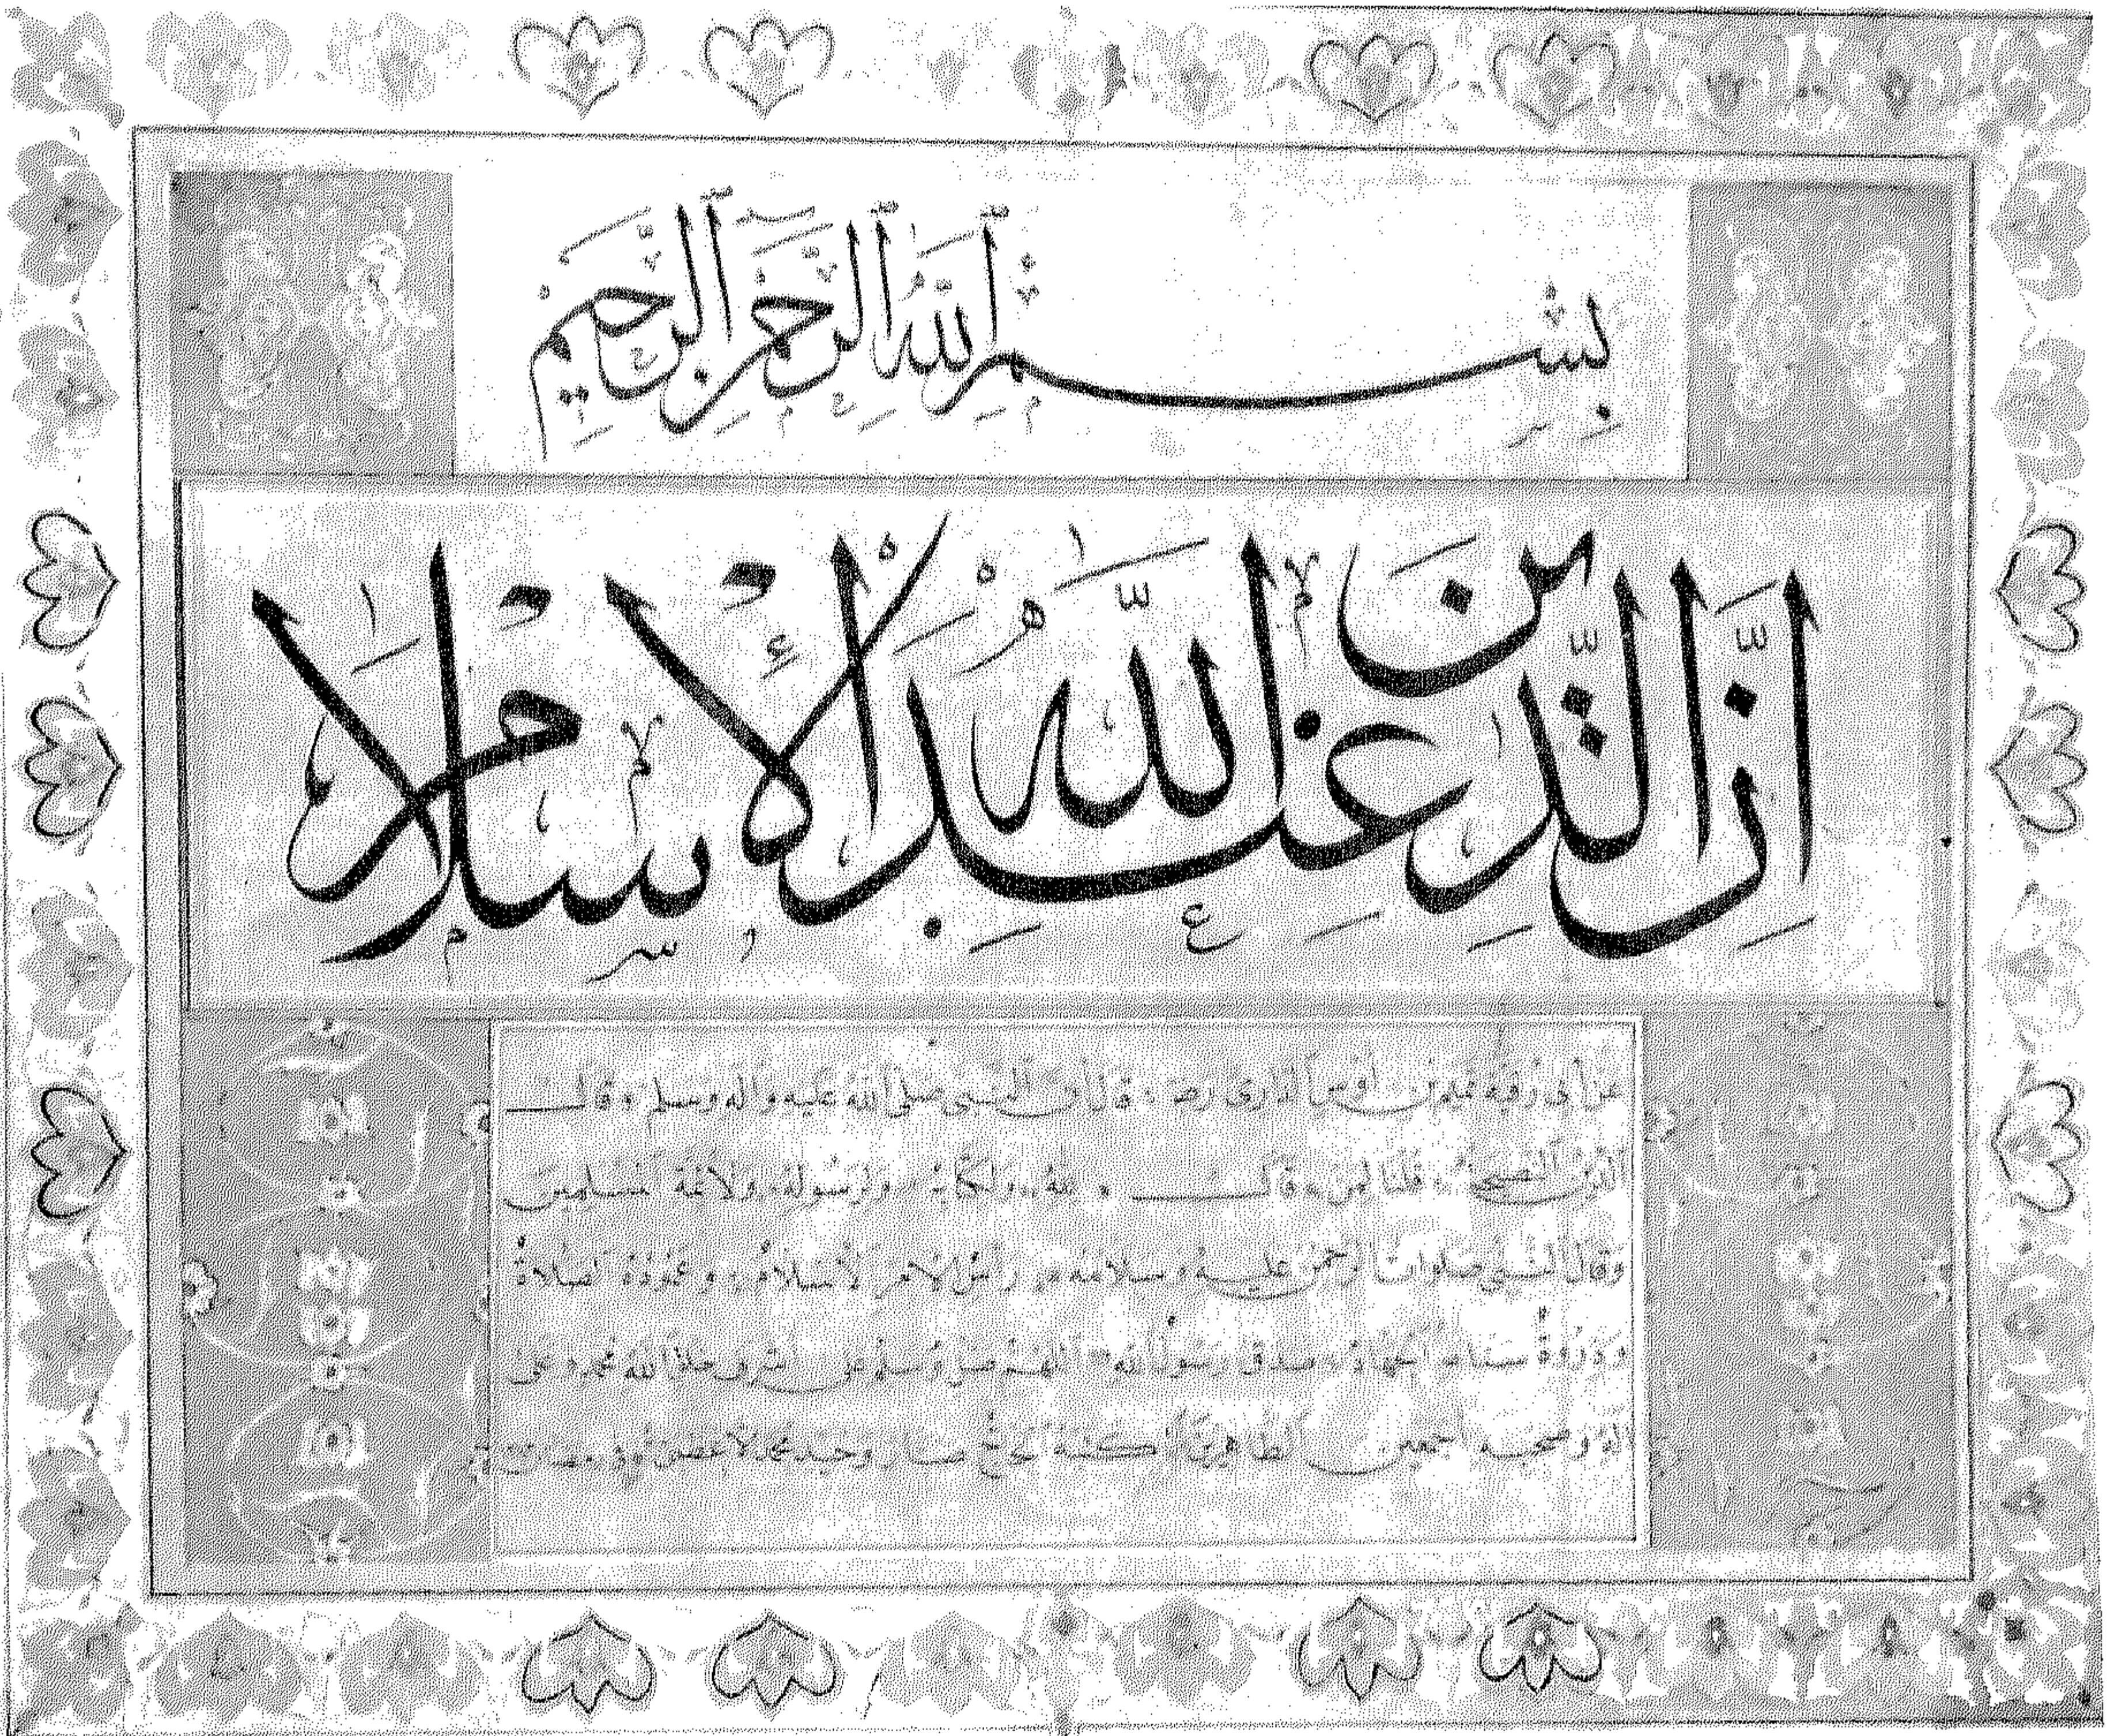 بِسْمِ اللّٰهِ الرَّحْمٰنِ الرَّحِيمِ
اِنَّ الدِّينَ عِنْدَ اللّٰهِ الْاِسْلَامُ
عن أبى رقية تميم بن أوس الدارى رضـ قال ان النبى صلى الله عليه واله وسلم قال
الدين النصيحة قلنا لمن قال لله ولكتابه ولرسوله ولائمة المسلمين
وقال النبى صلوات الرحمن عليه وسلامه رأس الامر الاسلام وعموده الصلاة
وذروة سنامه الجهاد صدق رسول الله اللهم صل وسلم على اشرف خلق الله محمد وعلى
اله وصحبه اجمعين الطاهرين كتبه